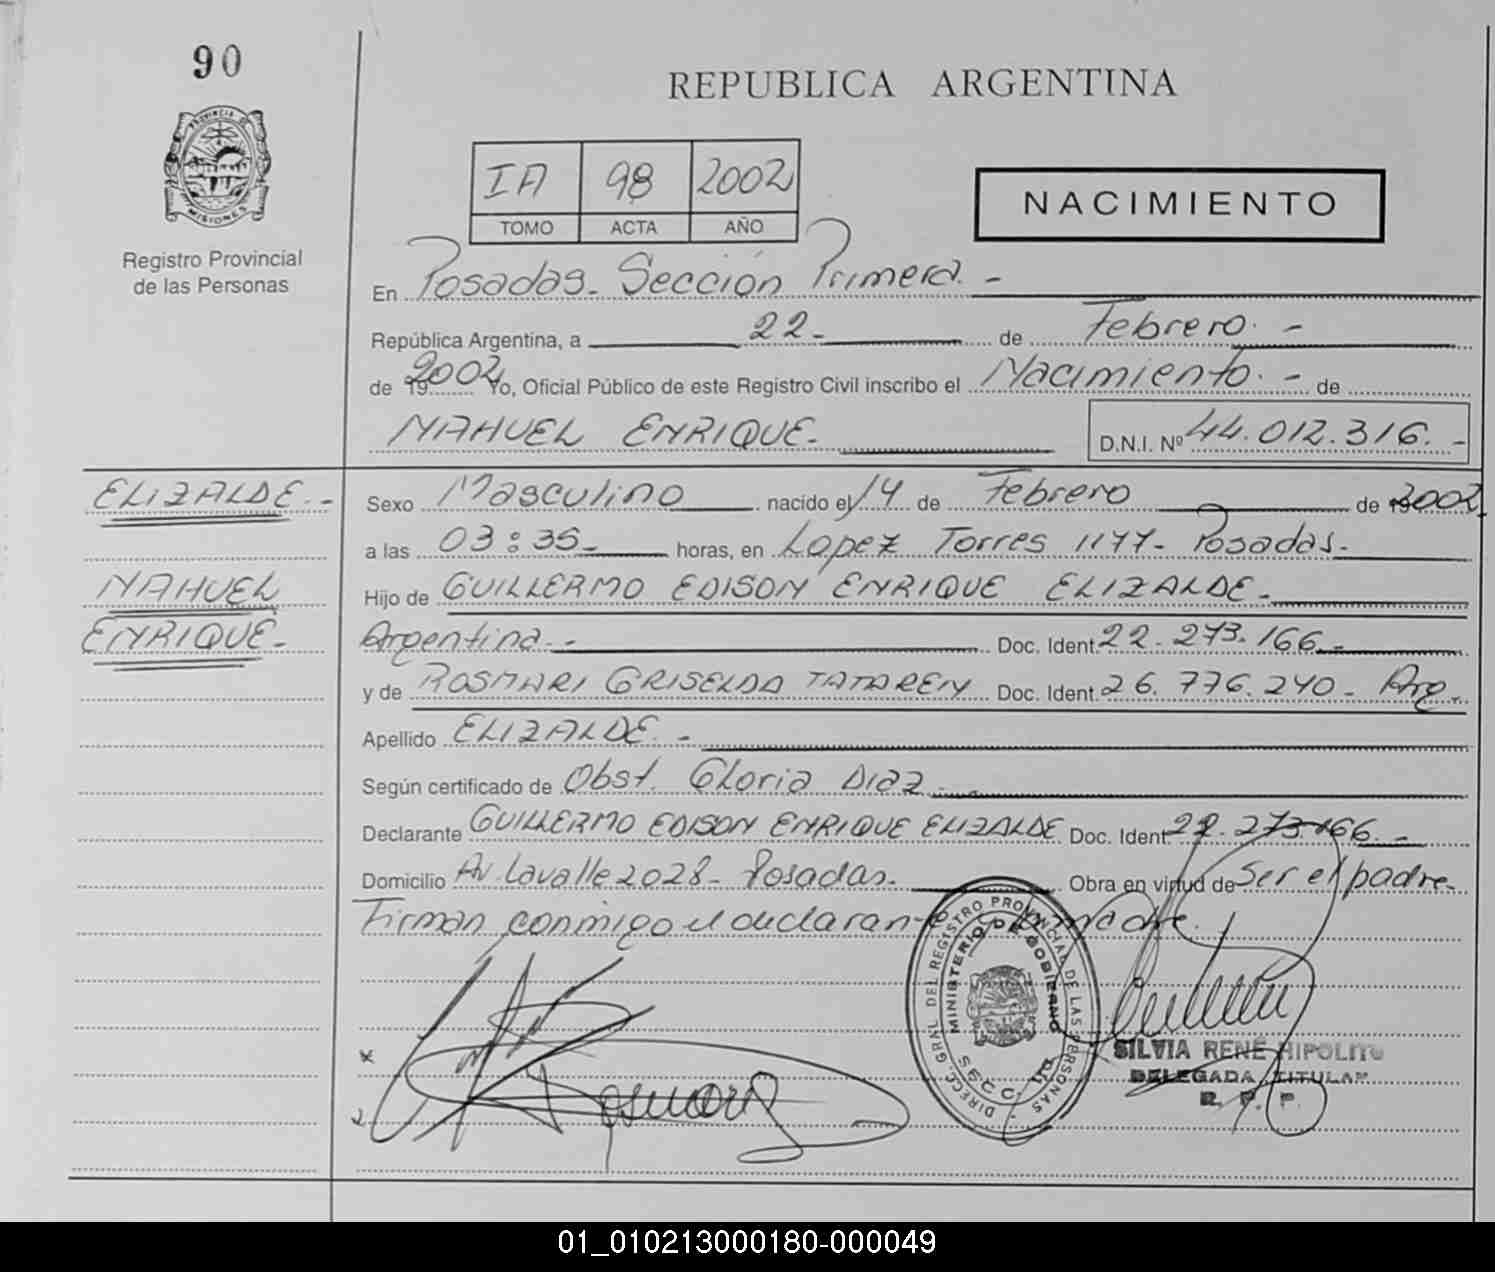 90
REPUBLICA ARGENTINA
PROVINCIA DE
MISIONES
IA 98 2002
TOMO ACTA AÑO
NACIMIENTO
Registro Provincial
de las Personas
En Posadas - Sección Primera. -
República Argentina, a 22 - de Febrero. -
de 2002 Yo, Oficial Público de este Registro Civil inscribo el Nacimiento. - de
NAHUEL ENRIQUE - D.N.I. Nº 44.012.316. -
ELIZALDE. - Sexo Masculino nacido el 14 de Febrero de 2002
a las 03:35 - horas, en Lopez Torres 1177 - Posadas. -
NAHUEL Hijo de GUILLERMO EDISON ENRIQUE ELIZALDE. -
ENRIQUE - Argentina. - Doc. Ident. 22.273.166. -
y de ROSMARI GRISELDA TATAREN Doc. Ident. 26.776.240 - Arg. -
Apellido ELIZALDE. -
Según certificado de Obst. Gloria Diaz. -
Declarante GUILLERMO EDISON ENRIQUE ELIZALDE Doc. Ident. 22.273.166. -
Domicilio Av. Lavalle 2028 - Posadas. - Obra en virtud de Ser el padre.
Firman conmigo el declarante y la madre.
DIRECC. GRAL DEL REGISTRO PROVINCIAL DE LAS PERSONAS
MINISTERIO DE GOBIERNO
SECC. 1ra
SILVIA RENE HIPOLITO
DELEGADA TITULAR
R. P. P.
01_010213000180-000049